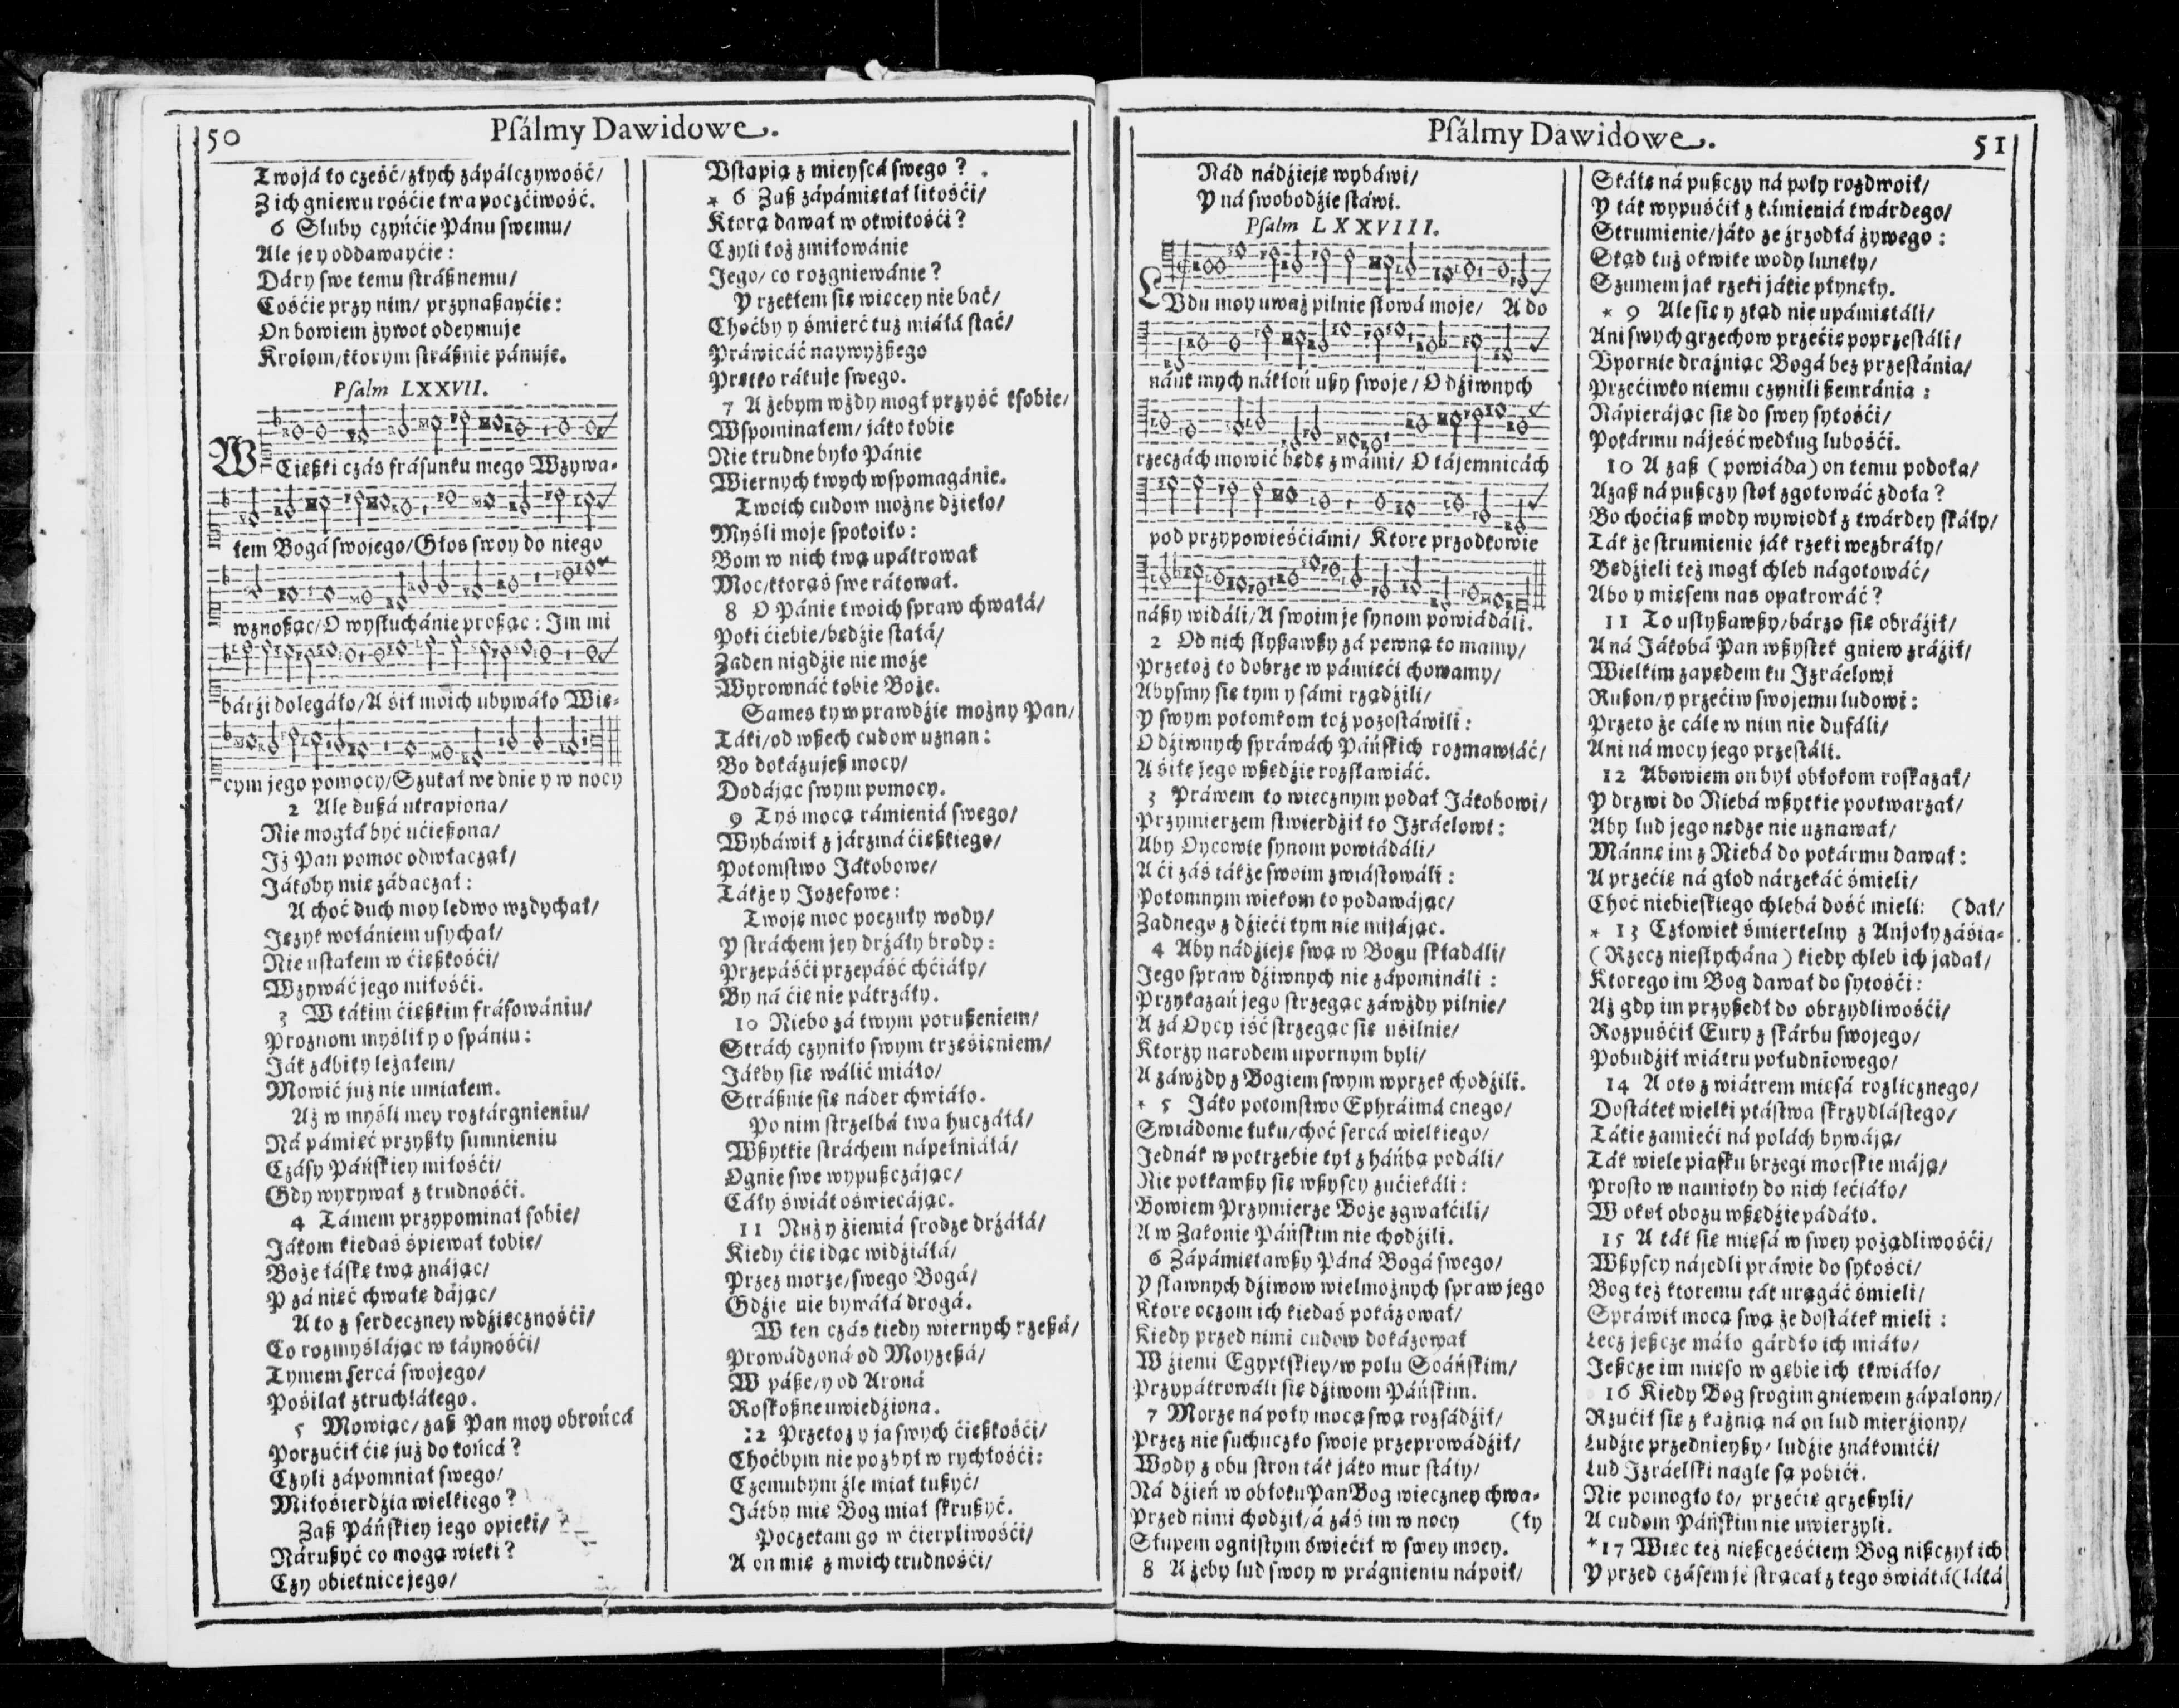 50 Psálmy Dawidowe.
Twojá to cześć/złych zápálczywość/
Z ich gniewu rośćie twa poczćiwość.
6 Sluby czyńćie Pánu swemu/
Ale je y oddawayćie:
Dáry swe temu strászнemu/
Cośćie przy nim/ przynaszayćie:
On bowiem żywot odeymuje
Krolom/ktorym strásznie pánuje.
Psalm LXXVII.
W Cięszki czás frásunku mego Wzywa-
łem Bogá swojego/Głos swoy do niego
wznosząc/O wysłuchánie prosząc: Im mi
bárźi dolegáło/A śił moich ubywáło Wię-
cym jego pomocy/Szukał we dnie y w nocy
2 Ale duszá utrapiona/
Nie mogłá być ućieszona/
Iż Pan pomoc odwłaczał/
Jákoby mię zábaczał:
A choć duch moy ledwo wzdychał/
Język wołániem usychał/
Nie ustałem w ćięszkośći/
Wzywáć jego miłośći.
3 W tákim ćięszkim frásowániu/
Proznom myślił y o spániu:
Ják zábity leżałem/
Mowić już nie umiałem.
Aż w myśli mey roztárgnieniu/
Ná pámięć przyszły sumnieniu
Czásy Páńskiey miłośći/
Gdy wyrywał z trudnośći.
4 Támem przypominał sobie/
Jákom kiedaś śpiewał tobie/
Boże łáskę twą znájąc/
Y zá nięć chwałę dájąc/
A to z serdeczney wdźięcznośći/
Co rozmyślájąc w táynośći/
Tymem sercá swojego/
Pośilał ztruchláłego.
5 Mowiąc/ zasz Pan moy obrońcá
Porzućił ćię już do końcá?
Czyli zápomniał swego/
Miłośierdźia wielkiego?
Zasz Páńskiey jego opieki/
Náruszyć co mogą wieki?
Czy obietnice jego/
Vstąpią z mieyscá swego?
* 6 Zasz zápámiętał litośći/
Ktorą dawał w okwitośći?
Czyli toż zmiłowánie
Jego/ co rozgniewánie?
Y rzekłem się więcey nie bać/
Choćby y śmierć tuż miáłá stać/
Práwicáć naywyższego
Prętko rátuje swego.
7 A żebym wżdy mogł przyść ksobie/
Wspominałem/ jáko tobie
Nie trudne było Pánie
Wiernych twych wspomagánie.
Twoich cudow możne dźieło/
Myśli moje spokoiło:
Bom w nich twą upátrował
Moc/ktorąś swe rátował.
8 O Pánie twoich spraw chwałá/
Poki ćiebie/będźie stałá/
Zaden nigdźie nie może
Wyrownáć tobie Boże.
Sameś ty w prawdźie możny Pan/
Táki/od wszech cudow uznan:
Bo dokázujesz mocy/
Dodájąc swym pomocy.
9 Tyś mocą rámieniá swego/
Wybáwił z járzmá ćięszkiego/
Potomstwo Jákobowe/
Tákże y Jozefowe:
Twoję moc poczuły wody/
Y stráchem jey drżáły brody:
Przepáśći przepáść chćiáły/
By ná ćię nie pátrzáły.
10 Niebo zá twym poruszeniem/
Strách czyniło swym trzęśieniem/
Jákby się wálić miáło/
Strásznie się náder chwiáło.
Po nim strzelbá twa huczáłá/
Wszytkie stráchem nápełniáłá/
Ognie swe wypuszczájąc/
Cáły świát oświecájąc.
11 Nuż y źiemiá srodze drżáłá/
Kiedy ćię idąc widźiáłá/
Przez morze/swego Bogá/
Gdźie nie bywáłá drogá.
W ten czás kiedy wiernych rzeszá/
Prowádzoná od Moyzeszá/
W pásze/y od Aroná
Roskoszne uwiedźiona.
12 Przetoż y ja swych ćięszkośći/
Choćbym nie pozbył w rychłośći:
Czemubym źle miał tuszyć/
Jákby mię Bog miał skruszyć.
Poczekam go w ćierpliwośći/
A on mię z moich trudnośći/
Psálmy Dawidowe. 51
Nád nádźieję wybáwi/
Y ná swobodźie stáwi.
Psalm LXXVIII.
LVdu moy uważ pilnie słowá moje/ A do
náuk mych nákłoń uszy swoje/ O dźiwnych
rzeczách mowić będę z wámi/ O tájemnicách
pod przypowieśćiámi/ Ktore przodkowie
nászy widáli/A swoim je synom powiádáli.
2 Od nich słyszawszy zá pewną to mamy/
Przetoż to dobrze w pámięći chowamy/
Abysmy się tym y sámi rządźili/
Y swym potomkom toż pozostáwili:
O dźiwnych spráwách Páńskich rozmawiáć/
A śiłę jego wszędźie rozsławiáć.
3 Práwem to wiecznym podał Jákobowi/
Przymierzem stwierdźił to Izráelowi:
Aby Oycowie synom powiádáli/
A ći záś tákże swoim zwiástowáli:
Potomnym wiekom to podawájąc/
Zadnego z dźieći tym nie mijájąc.
4 Aby nádźieję swą w Bogu składáli/
Jego spraw dźiwnych nie zápomináli:
Przykazań jego strzegąc záwżdy pilnie/
A zá Oycy iść strzegąc się uśilnie/
Ktorzy narodem upornym byli/
A záwżdy z Bogiem swym wprzek chodźili.
* 5 Jáko potomstwo Ephráimá cnego/
Swiádome łuku/choć sercá wielkiego/
Jednák w potrzebie tył z háńbą podáli/
Nie potkawszy się wszyscy zućiekáli:
Bowiem Przymierze Boże zgwałćili/
A w Zakonie Páńskim nie chodźili.
6 Zápámiętawszy Páná Bogá swego/
Y sławnych dźiwow wielmożnych spraw jego
Ktore oczom ich kiedaś pokázował/
Kiedy przed nimi cudow dokázował
W źiemi Egyptskiey/w polu Soáńskim/
Przypátrowáli się dźiwom Páńskim.
7 Morze ná poły mocą swą rozsádźił/
Przez nie suchuczko swoje przeprowádźił/
Wody z obu stron ták jáko mur stáły/
Ná dźień w obłoku Pan Bog wieczney chwa-
Przed nimi chodźił/á záś im w nocy (ły
Słupem ognistym świećił w swey mocy.
8 A żeby lud swoy w prágnieniu nápoił/
Skáłę ná puszczy ná poły rozdwoił/
Y ták wypuśćił z kámieniá twárdego/
Strumienie/jáko ze źrzodłá żywego:
Skąd tuż okwite wody lunęły/
Szumem jak rzeki jákie płynęły.
* 9 Ale się y ztąd nie upámiętáli/
Ani swych grzechow przećię poprzestáli/
Vpornie drażniąc Bogá bez przestánia/
Przećiwko niemu czynili szemránia:
Nápierájąc się do swey sytośći/
Pokármu nájeść według lubośći.
10 A zasz (powiáda) on temu podoła/
Azasz ná puszczy stoł zgotowáć zdoła?
Bo choćiasz wody wywiodł z twárdey skáły/
Ták że strumienie ják rzeki wezbráły/
Będźieli też mogł chleb nágotowáć/
Abo y mięsem nas opatrowáć?
11 To usłyszawszy/bárzo się obráźił/
A ná Jákobá Pan wszystek gniew zráźił/
Wielkim zapędem ku Izráelowi
Ruszon/y przećiw swojemu ludowi:
Przeto że cále w nim nie dufáli/
Ani ná mocy jego przestáli.
12 Abowiem on był obłokom roskazał/
Y drzwi do Niebá wszytkie pootwarzał/
Aby lud jego nędze nie uznawał/
Mánnę im z Niebá do pokármu dawał:
A przećię ná głod nárzekáć śmieli/
Choć niebieskiego chlebá dość mieli: (dał/
* 13 Człowiek śmiertelny z Anjoły záśia-
(Rzecz niesłychána) kiedy chleb ich jadał/
Ktorego im Bog dawał do sytośći:
Aż gdy im przyszedł do obrzydliwośći/
Rozpuśćił Eury z skárbu swojego/
Pobudźił wiátru południowego/
14 A oto z wiátrem mięsá rozlicznego/
Dostátek wielki ptástwa skrzydlástego/
Tákie zamieći ná polách bywáją/
Ták wiele piasku brzegi morskie máją/
Prosto w namioty do nich lećiáło/
W okoł obozu wszędźie pádáło.
15 A ták się mięsá w swey pożądliwośći/
Wszyscy nájedli práwie do sytośći/
Bog też ktoremu ták urągáć śmieli/
Spráwił mocą swą że dostátek mieli:
Lecz jeszcze máło gárdło ich miáło/
Jeszcze im mięso w gębie ich tkwiáło/
16 Kiedy Bog srogim gniewem zápalony/
Rzućił się z kaźnią ná on lud mierźiony/
Ludźie przednieyszy/ ludźie znákomići/
Lud Izráelski nagle są pobići.
Nie pomogło to/ przećię grzeszyli/
A cudom Páńskim nie uwierzyli.
*17 Więc też nieszczęśćiem Bog niszczył ich
Y przed czásem je strącał z tego świátá (látá